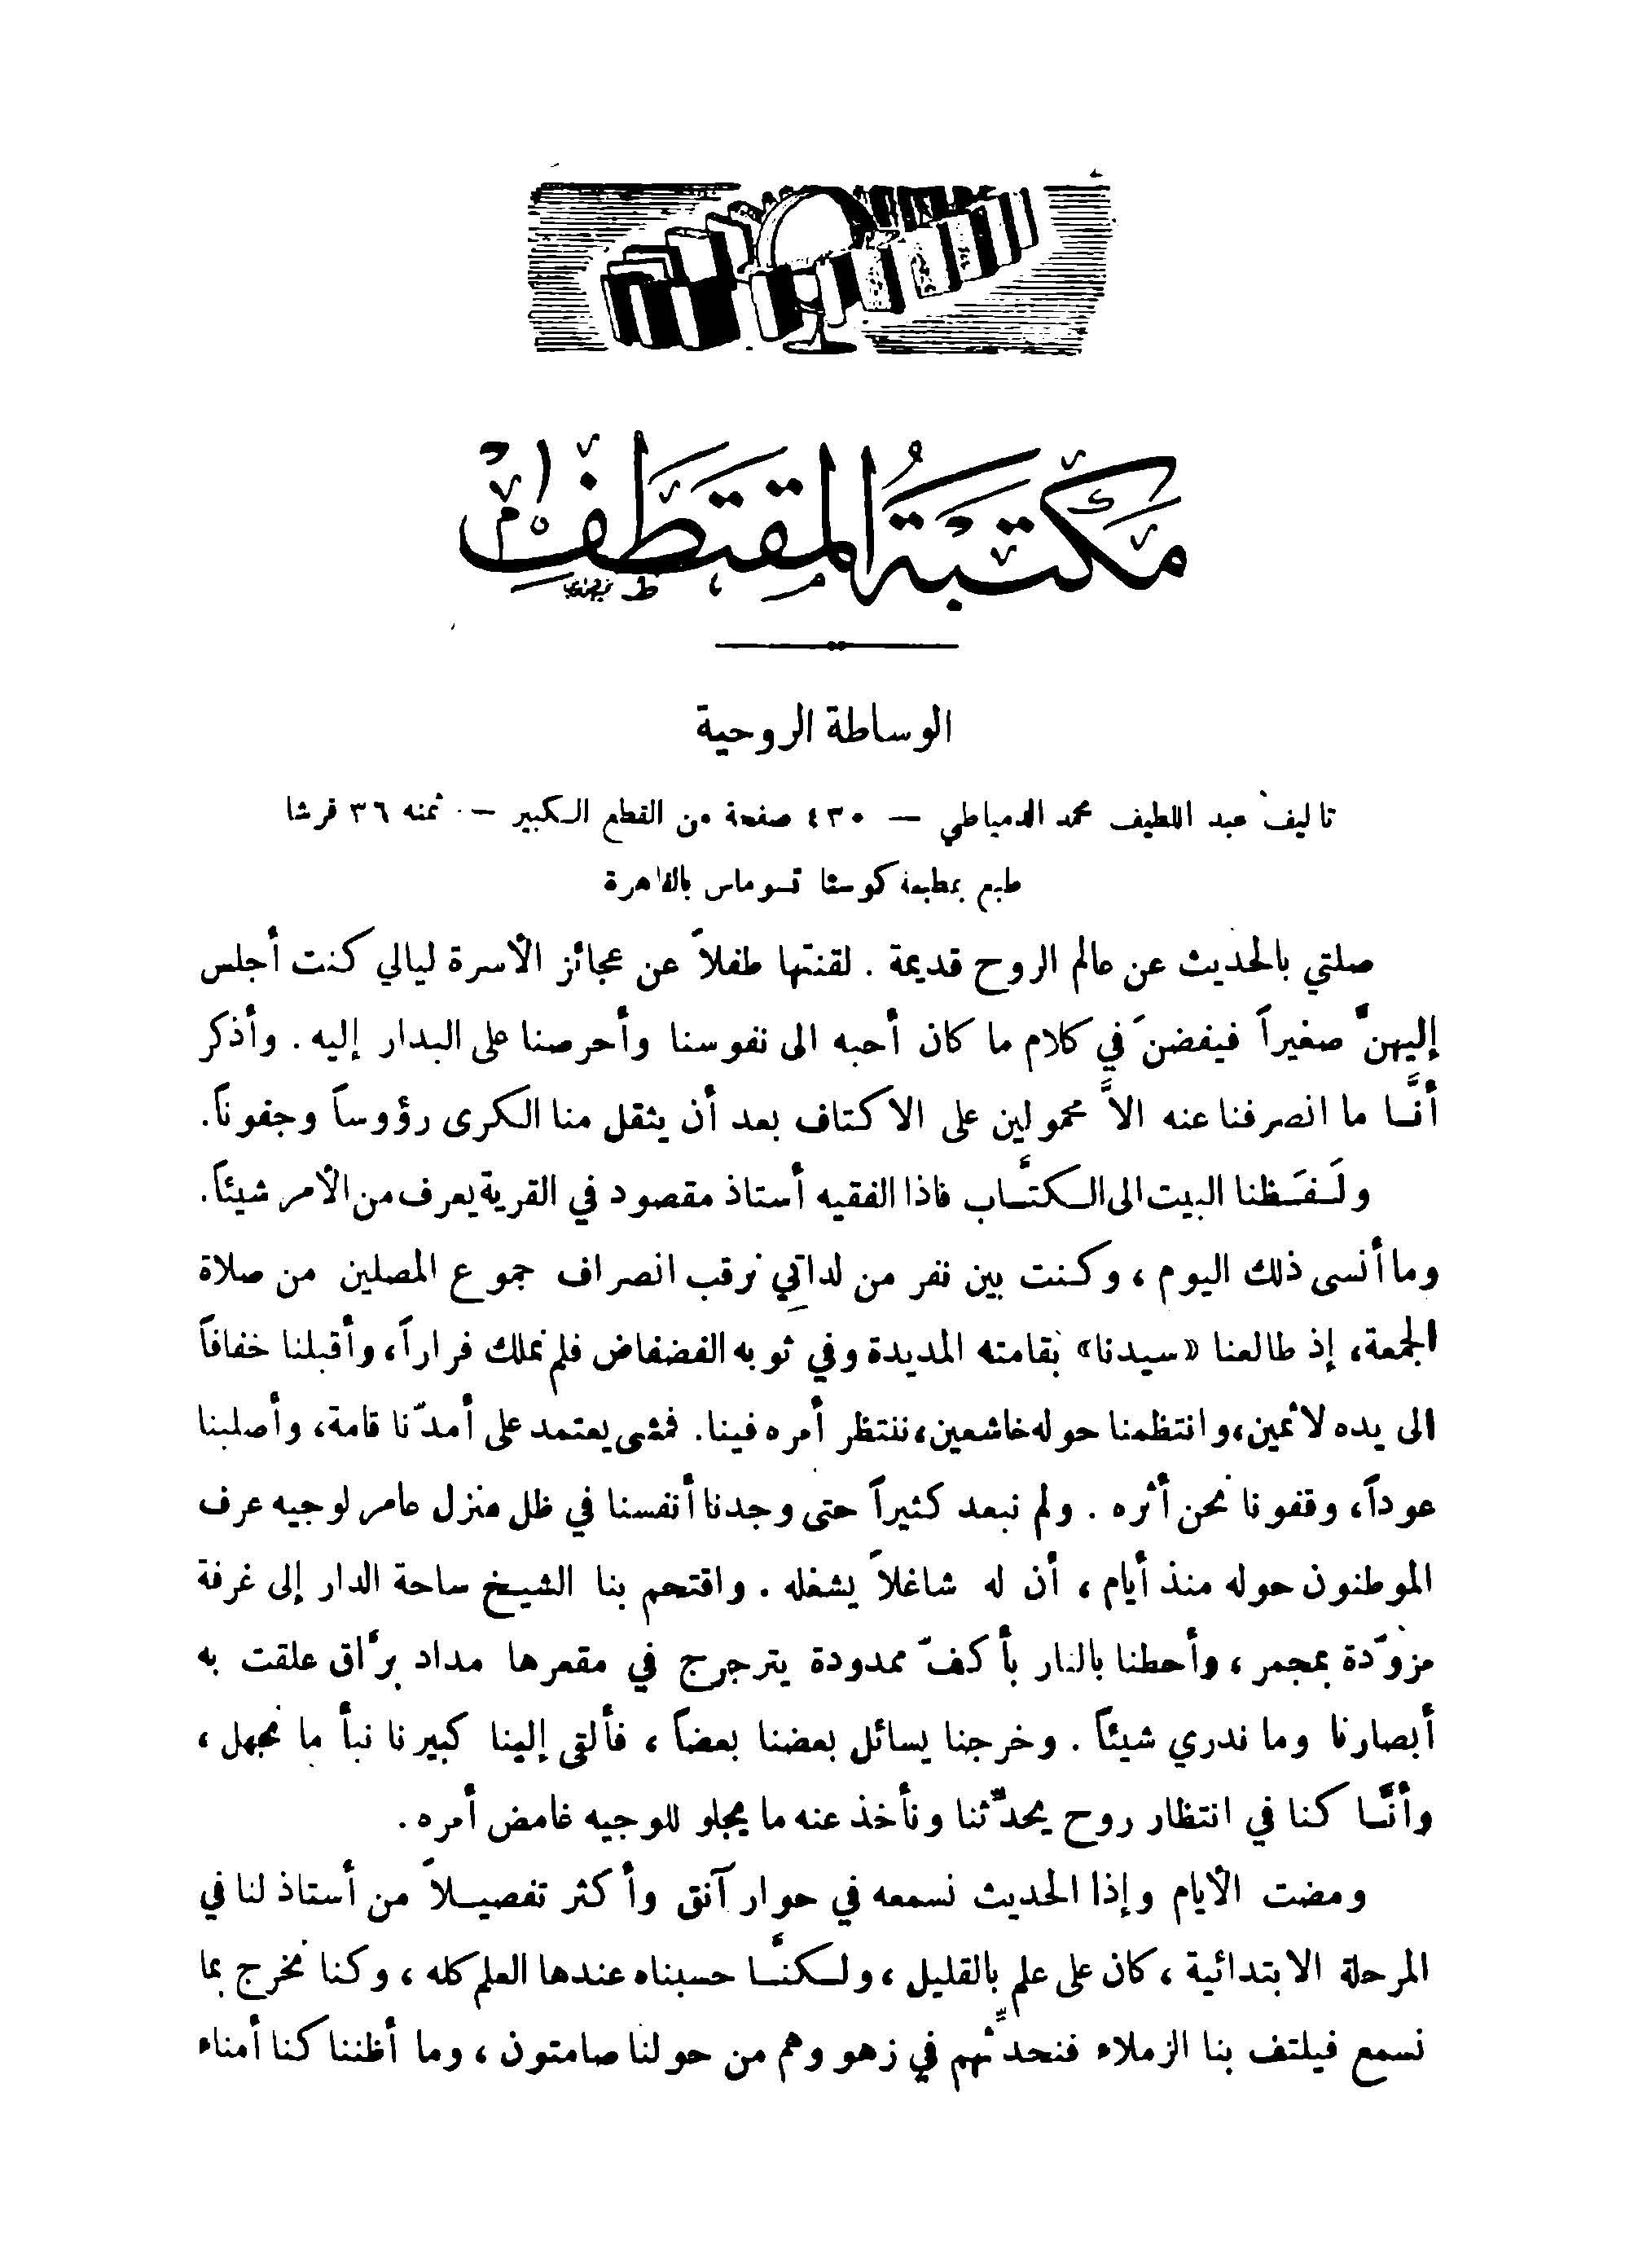 مكتبة المقتطف
الوساطة الروحية
تأليف عبد اللطيف محمد الدمياطي — ٤٣٠ صفحة من القطع الكبير — ثمنه ٣٦ قرشا
طبع بمطبعة كوستا تسوماس بالقاهرة
صلتي بالحديث عن عالم الروح قديمة . لقنتها طفلاً عن عجائز الأسرة ليالي كنت أجلس
إليهنَّ صغيراً فيفضنَ في كلام ما كان أحبه الى نفوسنا وأحرصنا على البدار إليه . وأذكر
أنَّا ما انصرفنا عنه الاَّ محمولين على الاكتاف بعد أن يثقل منا الكرى رؤوساً وجفوناً.
ولَفَظنا البيت الى الكتَّاب فاذا الفقيه أستاذ مقصود في القرية يعرف من الأمر شيئاً.
وما أنسى ذلك اليوم ، وكنت بين نفر من لداتي نرقب انصراف جموع المصلين من صلاة
الجمعة، إذ طالعنا «سيدنا» بقامته المديدة وفي ثوبه الفضفاض فلم نملك فراراً، وأقبلنا خفافاً
الى يده لاثمين، وانتظمنا حوله خاشعين، ننتظر أمره فينا. فمشى يعتمد على أمدّنا قامة، وأصلبنا
عوداً، وقفونا نحن أثره . ولم نبعد كثيراً حتى وجدنا أنفسنا في ظل منزل عامر لوجيه عرف
الموطنون حوله منذ أيام ، أن له شاغلاً يشغله . واقتحم بنا الشيخ ساحة الدار إلى غرفة
مزوّدة بمجمر ، وأحطنا بالنار بأكفّ ممدودة يترجرج في مقعرها مداد برَّاق علقت به
أبصارنا وما ندري شيئاً . وخرجنا يسائل بعضنا بعضاً ، فألقى إلينا كبيرنا نبأ ما نجهل ،
وأنَّا كنا في انتظار روح يحدّثنا ونأخذ عنه ما يجلو للوجيه غامض أمره .
ومضت الأيام وإذا الحديث نسمعه في حوار آنق وأكثر تفصيلاً من أستاذ لنا في
المرحلة الابتدائية ، كان على علم بالقليل ، ولكنَّا حسبناه عندها العلم كله ، وكنا نخرج بما
نسمع فيلتف بنا الزملاء فنحدِّثهم في زهو وهم من حولنا صامتون ، وما أظننا كنا أمناء